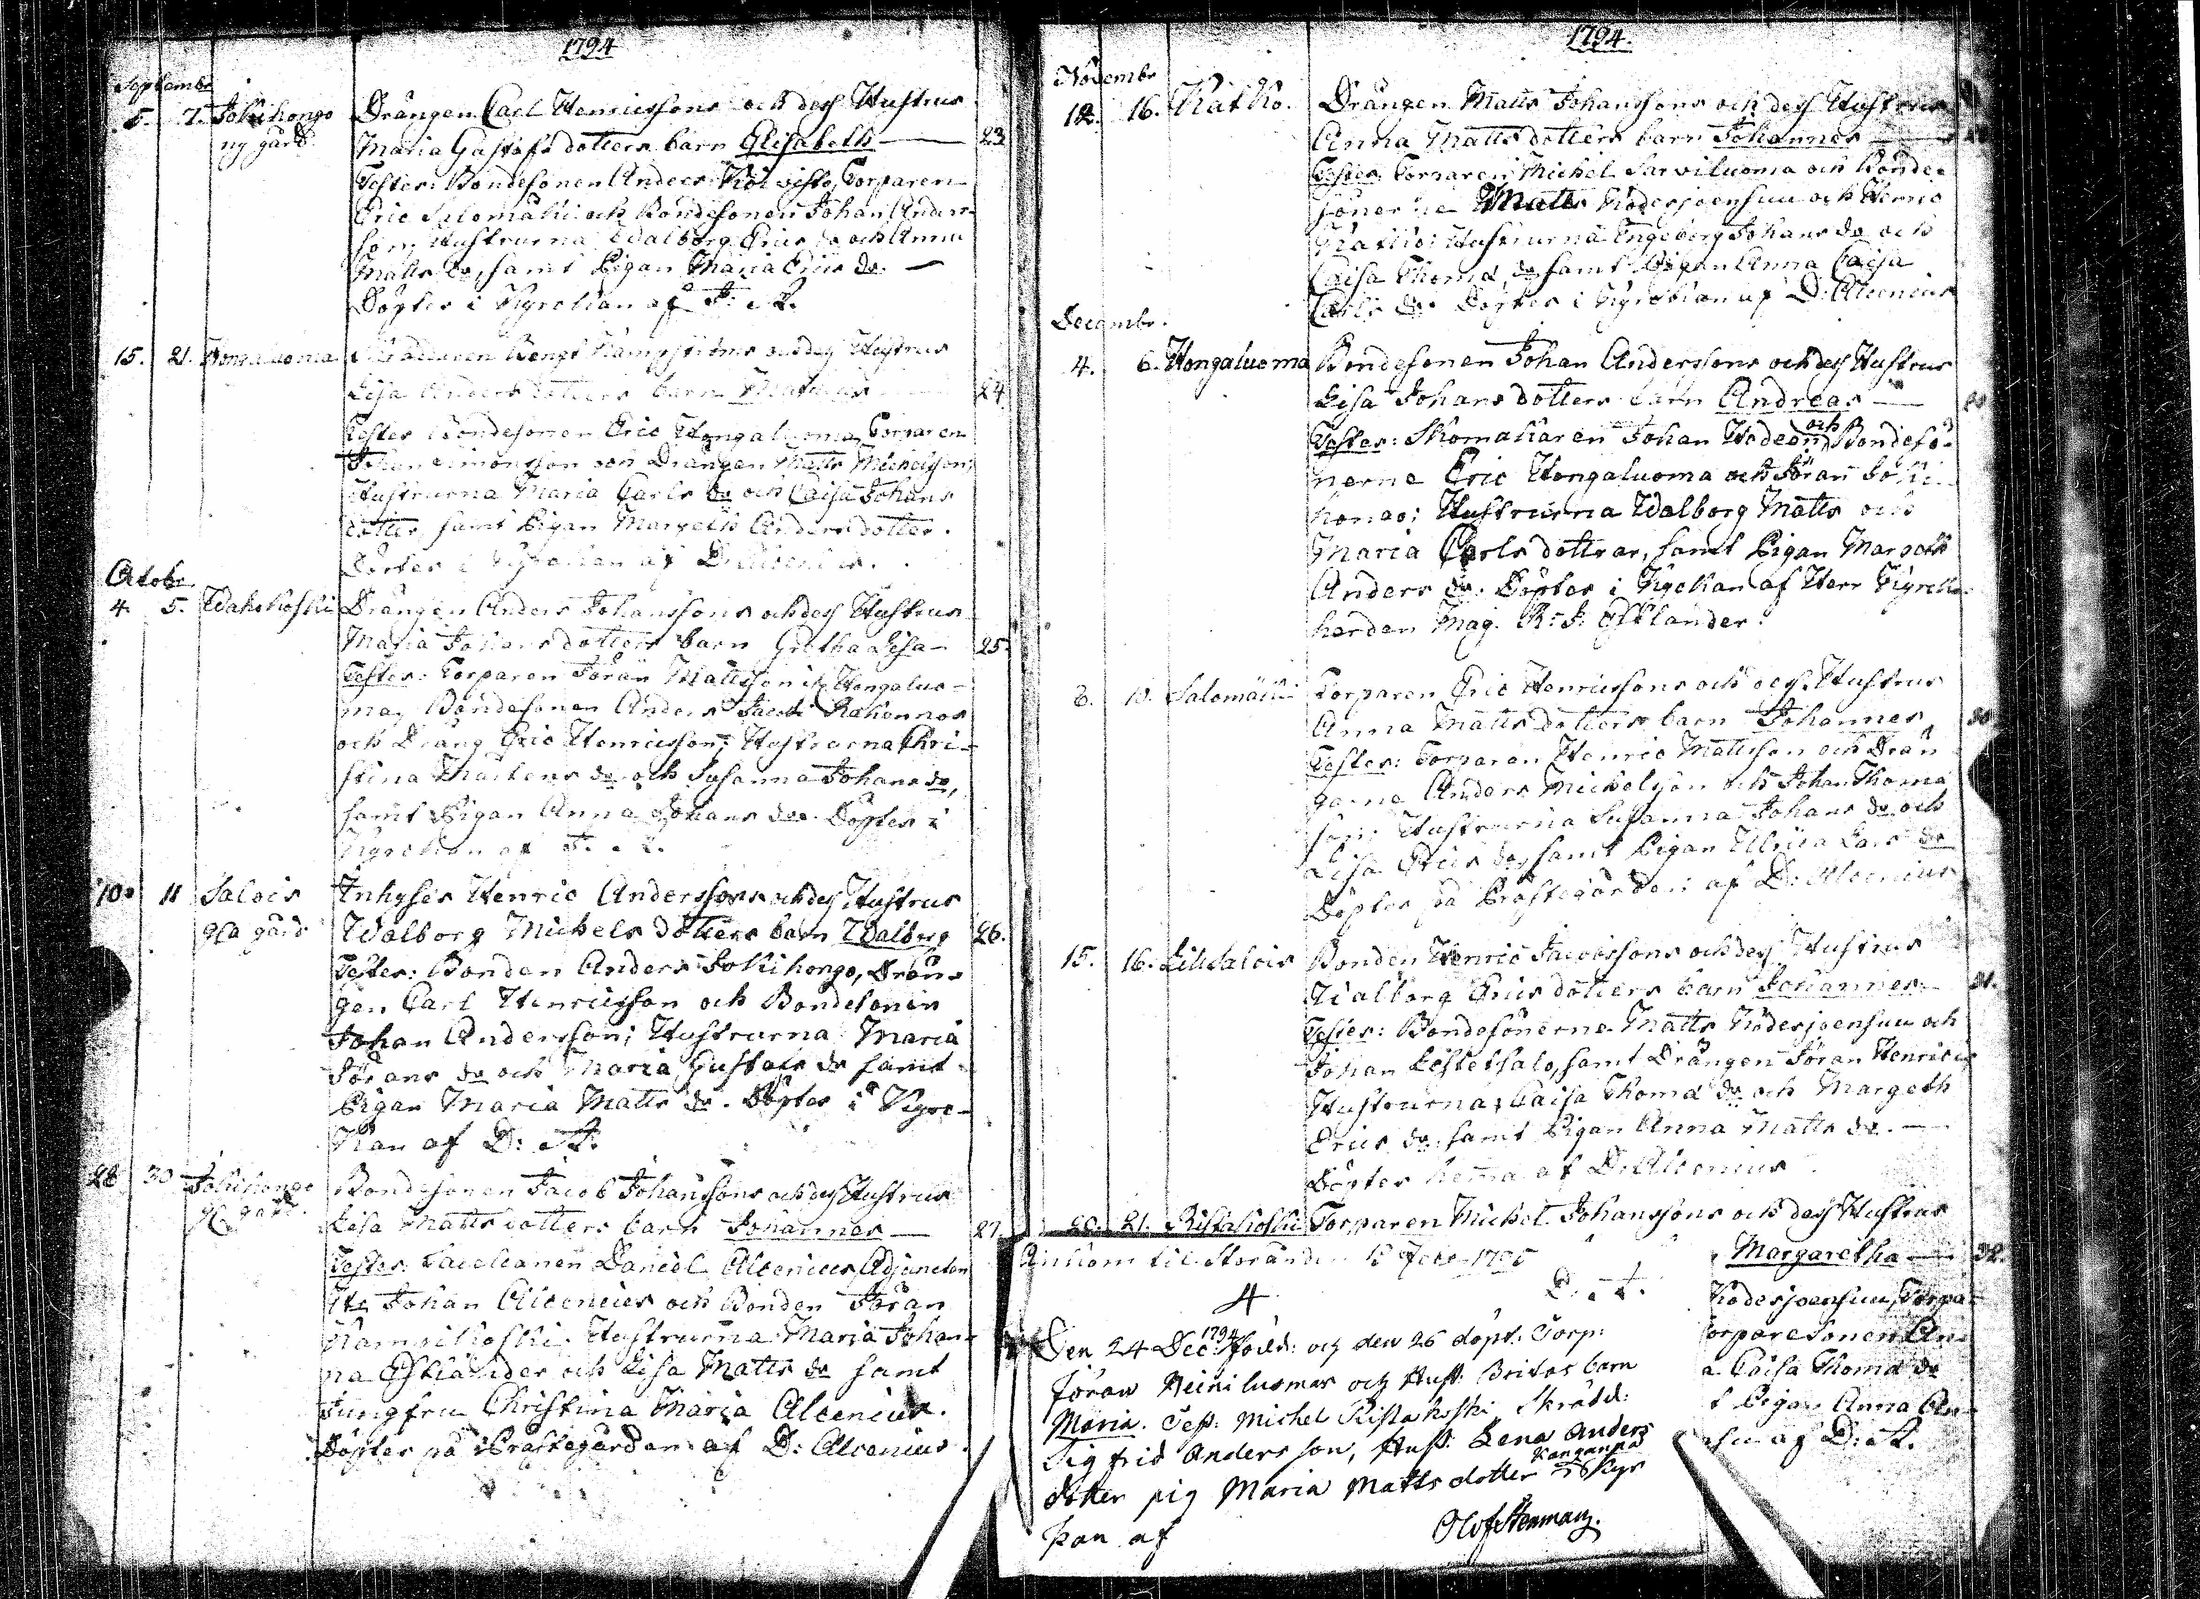 1794
Septembr
5. 7. Jokihongo Drängen Carl Henricssons och dess Hustrus
ny gård Maria Gustafs dotters barn Elisabeth — 23
Testes: Bondesonen Anders Koivisto, Torparen
Eric Salomäki och Bondesonen Johan Anders-
son; Hustrurna Walborg Erics do och Anna
Matts do, samt Pigan Maria Erics do. —
Döptes i Kyrckian af J: A.
15. 21. Hongaluoma Bengt och dess Hustrus
Lisa Anders dotters barn — 24
Testes Bondesonen Eric Hongaluoma, Torparen
Johan Simonsson och Drängen Matts Michelsson;
Hustrurna Maria Carls do och Caisa Johans
dotter samt Pigan Margeth Anders dotter.
Döptes i Kyrckian af D: Alcenius.
Octobr
4. 5. Wakokoski Drängen Anders Johanssons och dess Hustrus
Maria Johans dotters barn Gretha Lisa — 25.
Testes: Torparen Jöran Mattsson i Hongaluo-
ma, Bondesonen Anders Jacob Kohonnos
och Dräng Eric Henricsson; Hustrurna Chri-
stina Mårtens do och Susanna Johans do,
samt Pigan Anna Johans do. Döptes i
Kyrckian af J. A.
10. 11 Salois Inhyses Henric Anderssons och dess Hustrus
gla gård Walborg Michels dotters barn Walborg 26.
Testes: Bonden Anders Jokihongo, Drän-
gen Carl Henricsson och Bondesonen
Johan Andersson; Hustrurna Maria
Jörans do och Maria Gustafs do samt
Pigan Maria Matts do. Döptes i Kyrc-
kan af D: A.
28 30 Jokihongo Bondesonen Jacob Johanssons och dess Hustrus
gl. gård. Lisa Matts dotters barn Johannes — 27.
Testes: Sacellanen Daniel Alcenius, Adjuncten
Hr Johan Alcenius och Bonden Jöran
Kampilkoski. Hustrurna Maria Johan-
na Estlander och Lisa Matts do samt
Jungfru Christina Maria Alcenius.
Döptes på Prästegården af D: Alcenius.
1794.
Novembr
12. 16. Katko. Drängen Matts Johanssons och dess Hustrus
Anna Matts dotters barn Johannes —
Testes: Torparen Michel Sarviluoma och Bonde-
sönerne Matts Ködesjoensuu och Henric
Katko; Hustrurna Engeborg Johans do och
Caisa Thoma do, samt Pigan Anna Caisa
Carls do. Döptes i Kyrckian af D: Alcenius
Decembr.
4. 6. Hongaluoma Bondesonen Johan Anderssons och dess Hustrus
Lisa Johans dotters barn Andreas —
Testes: Skomakaren Johan Hedeen, och Bondesö-
nerne Eric Hongaluoma och Jöran Joki-
hongo; Hustrurna Walborg Matts och
Maria Carls dottrar, samt Pigan Margeth
Anders do. Döptes i Kyrckan af Herr Kyrcko-
herden Mag. Estlander.
8. 10. Salomäki Torparen Eric Henricssons och dess Hustrus
Anna Matts dotters barn Johannes 30.
Testes: Torparen Henric Mattsson och Drän-
garne Anders Michelsson och Johan Thoma
son; Hustrurna Susanna Johans do och
Lisa Erics do, samt Pigan Ulrica Lars do
Döptes på Prästegården af D: Alcenius
15. 16. Lill Salois Bonden Henric Jacobssons och dess Hustrus
Walborg Erics dotters barn Johannes — 31.
Testes: Bondesönerne Matts Ködesjoensuu och
Johan Leskelsalo, samt Drängen Jöran Henrics;
Hustrurna Caisa Thoma do och Margeth
Erics do, samt Pigan Anna Matts do. —
Döptes hemma af D: Alcenius
20. 21. Ristakoski Torparen Michel Johanssons och dess Hustrus
Margaretha — 32.
Ködesjoensuu, Torpa-
Torparesonen An-
Caisa Thoma do
Pigan Anna An-
af D: A.
Ankom til 1795
D: A.
4
Den 24 Dec: 1794 född: och den 26 döpt: Torp:
Jöran Heiniluomas och Hust: Britas barn
Maria. Test: Michel Ristakoski Skrädd:
Sigfrid Andersson, Hust: Lena Anders
dotter pig Maria Matts dotter Kangan i Kyr
kan af Olof Stenman.